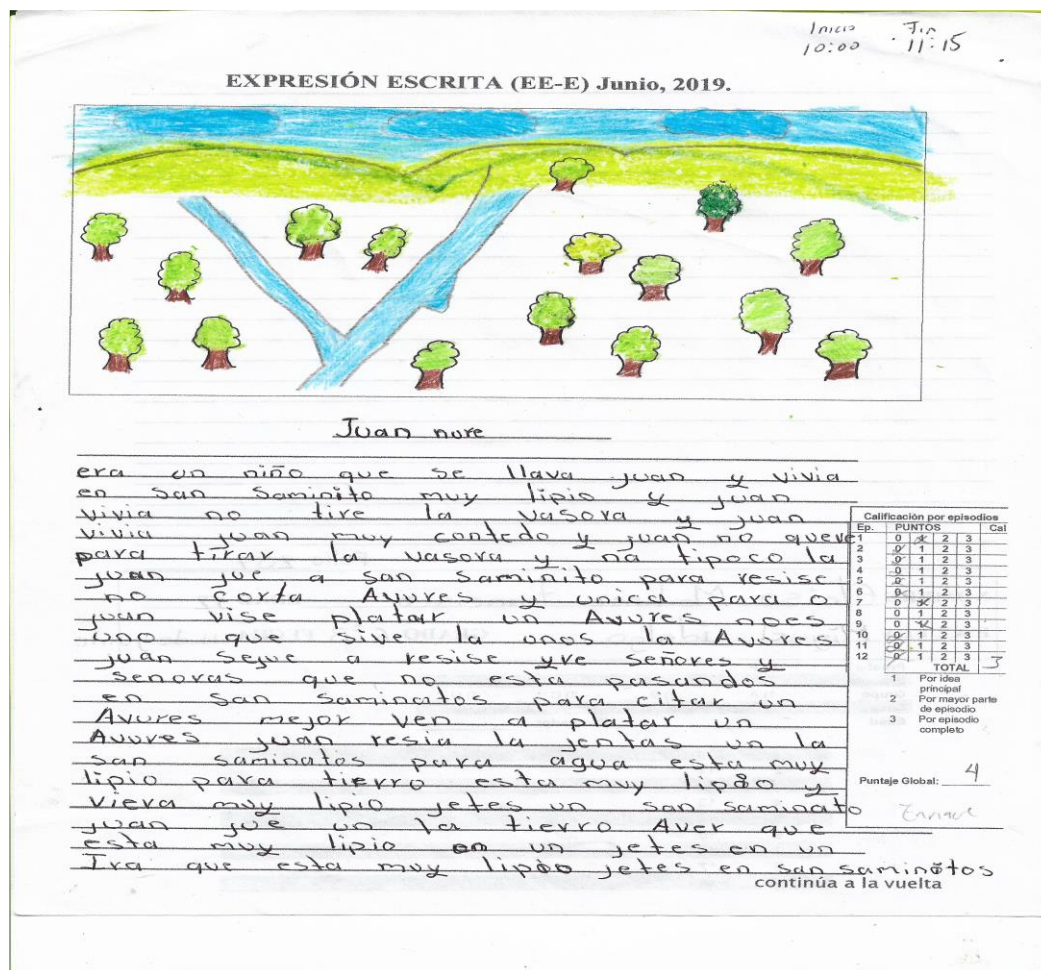 Inicio Fin
10:00 11:15
EXPRESIÓN ESCRITA (EE-E) Junio, 2019.
Juan nure
era un niño que se llava juan y vivia
en san Saminito muy lipio y juan
vivia no tire la vasora y juan
vivia juan muy contedo y juan no queve
para tirar la vasora y na tipoco la
juan jue a san Saminito para resise
no corta Avures y unica para o
juan vise platar un Avures noes
uno que sive la unos la Avures
juan sejue a resise yre señores y
senoras que no esta pasandos
en san saminatos para citar un
Avures mejor ven a platar un
Avures juan resia la jentas un la
san saminatos para agua esta muy
lipio para tierro esta muy lipio y
viera muy lipio jetes un san saminato
juan jue un la tierro Aver que
esta muy lipio en un jetes en un
Ira que esta muy lipio jetes en san saminotos
continúa a la vuelta
Calificación por episodios
Ep. PUNTOS Cal
1 0 1 2 3
2 0 1 2 3
3 0 1 2 3
4 0 1 2 3
5 0 1 2 3
6 0 1 2 3
7 0 1 2 3
8 0 1 2 3
9 0 1 2 3
10 0 1 2 3
11 0 1 2 3
12 0 1 2 3
TOTAL 3
1 Por idea
principal
2 Por mayor parte
de episodio
3 Por episodio
completo
Puntaje Global: 4
Enrique